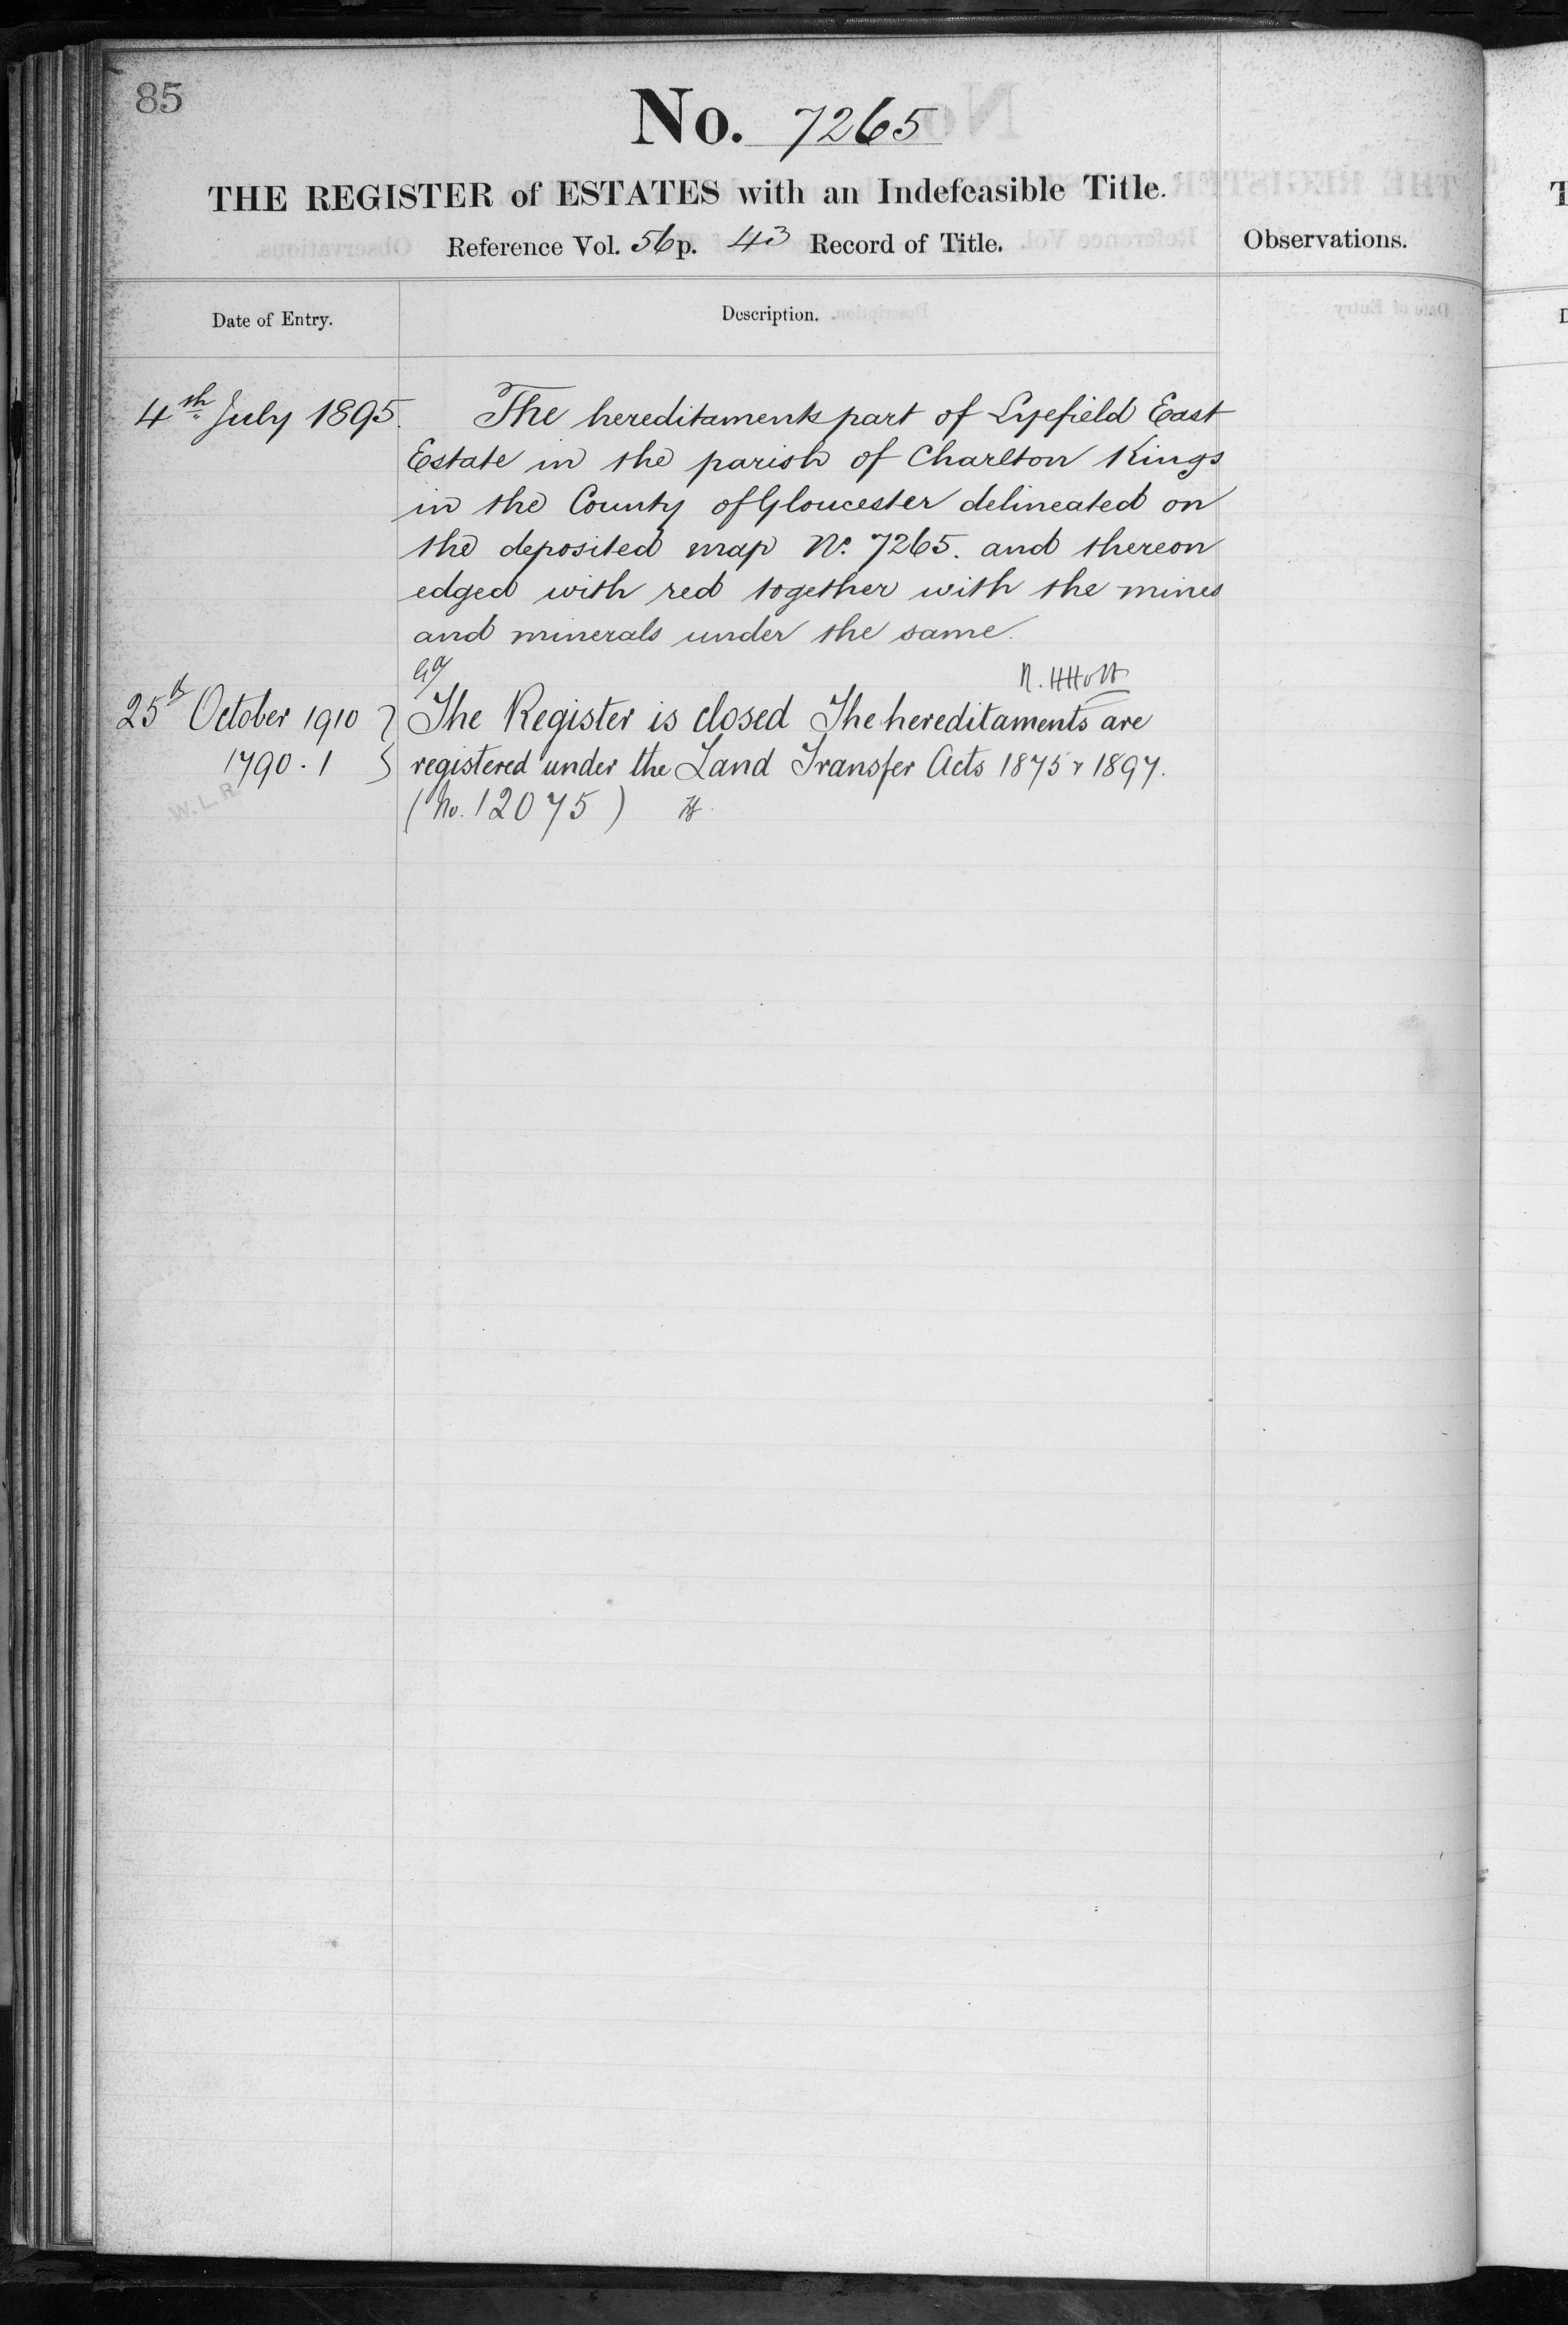 85
No. 7265
THE REGISTER of ESTATES with an Indefeasible Title.
Reference Vol. 56 p. 43 Record of Title.
Observations.
Date of Entry.
Description.
4th July 1895. The hereditaments part of Lyefield East
Estate in the parish of Charlton Kings
in the County of Gloucester delineated on
the deposited map No. 7265. and thereon
edged with red together with the mines
and minerals under the same.
25th October 1910 } The Register is closed The hereditaments are
1790.1 } registered under the Land Transfer Acts 1875 & 1897.
W.L.R.
(No. 12075)